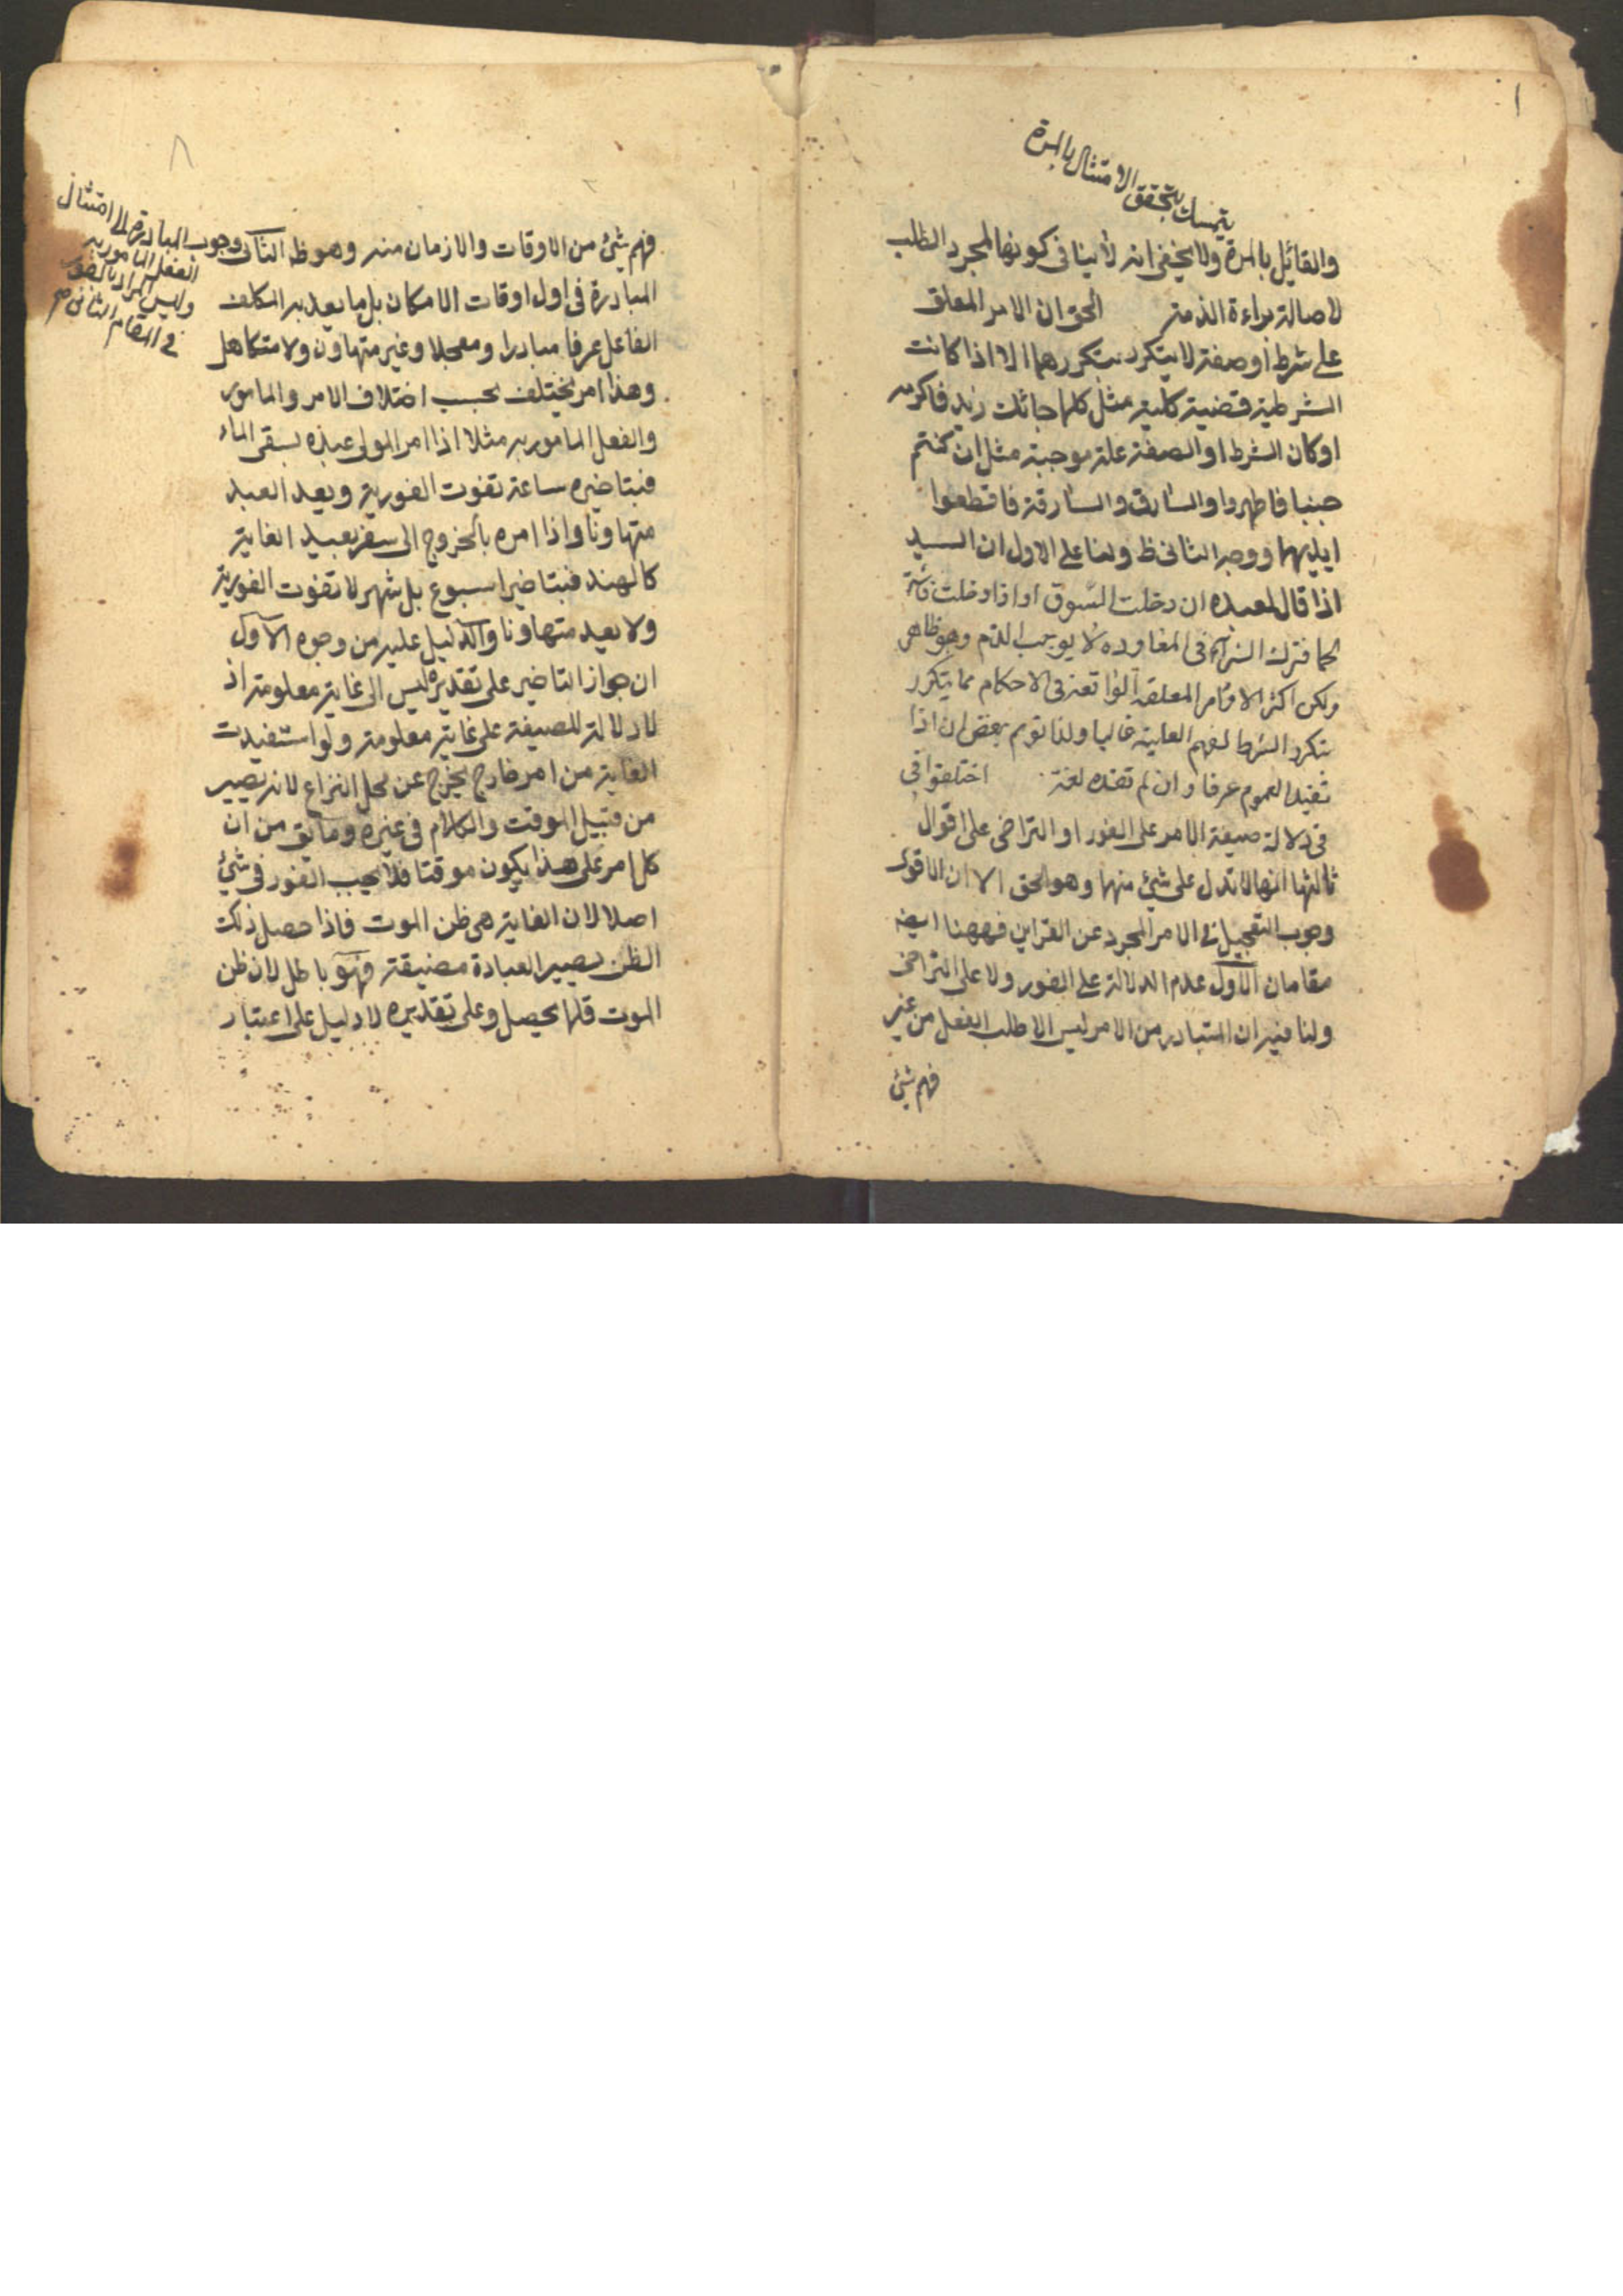 يتمسك بتحقق الامتثال بالمرة
والقائل بالمرة ولا يخفى انه لا ينافى كونها لمجرد الطلب
لاصالة براءة الذمة الحق ان الامر المعلق
على شرط او صفة لا يتكرر بتكررهما الا اذا كانت
الشرطية قضية كلية مثل كلما جائك زيد فاكرمه
او كان الشرط او الصفة علة موجبة مثل ان كنتم
جنبا فاطهروا والسارق والسارقة فاقطعوا
ايديهما ووجه الثانى ظ ولنا على الاول ان السيد
اذا قال لعبده ان دخلت السوق او اذا دخلت فاشتر
لحما فترك الشراء فى المعاودة لا يوجب الذم وهو ظاهر
ولكن اكثر الاوامر المعلقة الواقعة فى الاحكام مما يتكرر
بتكرر الشرط لفهم العلية غالبا ولذا توهم بعض ان اذا
تفيد العموم عرفا وان لم تفده لغة اختلفوا فى
فى دلالة صيغة الامر على الفور او التراخى على اقوال
ثالثها انها لا تدل على شئ منها وهو الحق الا ان الاقوى
وجوب التعجيل فى الامر المجرد عن القراين فههنا ايضه
مقامان الاول عدم الدلالة على الفور ولا على التراخى
ولنا فيه ان المتبادر من الامر ليس الا طلب الفعل من غير
فهم شئ
فهم شئ من الاوقات والازمان منه وهو ظه الثانى وجوب المبادرة الى امتثال
الفعل المامور به
وليس المراد بالفور
فى المقام الثانى صح
المبادرة فى اول اوقات الامكان بل ما يعد به المكلف
الفاعل عرفا مبادرا ومعجلا وغير متهاون ولا متكاهل
وهذا امر يختلف بحسب اختلاف الامر والمامور
والفعل المامور به مثلا اذا امر المولى عبده بسقى الماء
فبتاخيره ساعة تفوت الفورية ويعد العبد
متهاونا واذا امره بالخروج الى سفر بعيد الغاية
كالهند فبتاخير اسبوع بل شهر لا تفوت الفورية
ولا يعد متهاونا والدليل عليه من وجوه الاول
ان جواز التاخير على تقديره ليس الى غاية معلومة اذ
لا دلالة للصيغة على غاية معلومة ولو استفيدت
الغاية من امر خارج يخرج عن محل النزاع لانه يصير
من قبيل الموقت والكلام فى غيره وما يق من ان
كل امر على هذا يكون موقتا فلا يجب الفور فى شئ
اصلا لان الغاية هى ظن الموت فاذا حصل ذلك
الظن يصير العبادة مضيقة فهو باطل لان ظن
الموت قلما يحصل وعلى تقديره لا دليل على اعتبار